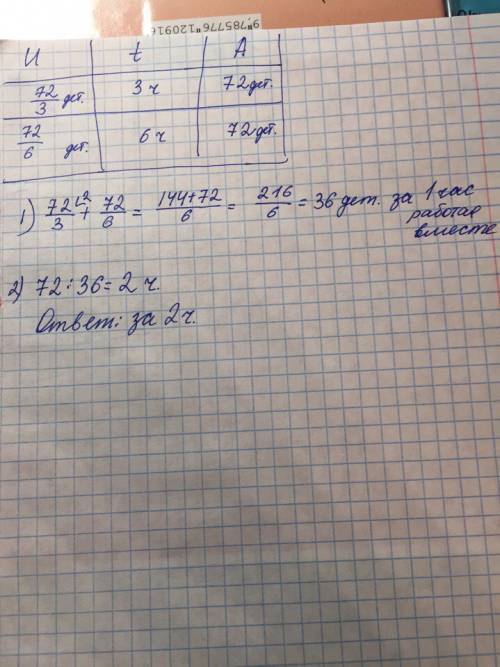 9"785776"12091
И t A
72/3 дет. 3 ч 72 дет.
72/6 дет. 6 ч 72 дет.
1) 72/3 ⌊2 + 72/6 = 144+72/6 = 216/6 = 36 дет. за 1 час
работая
вместе
2) 72 : 36 = 2 ч.
Ответ: за 2 ч.